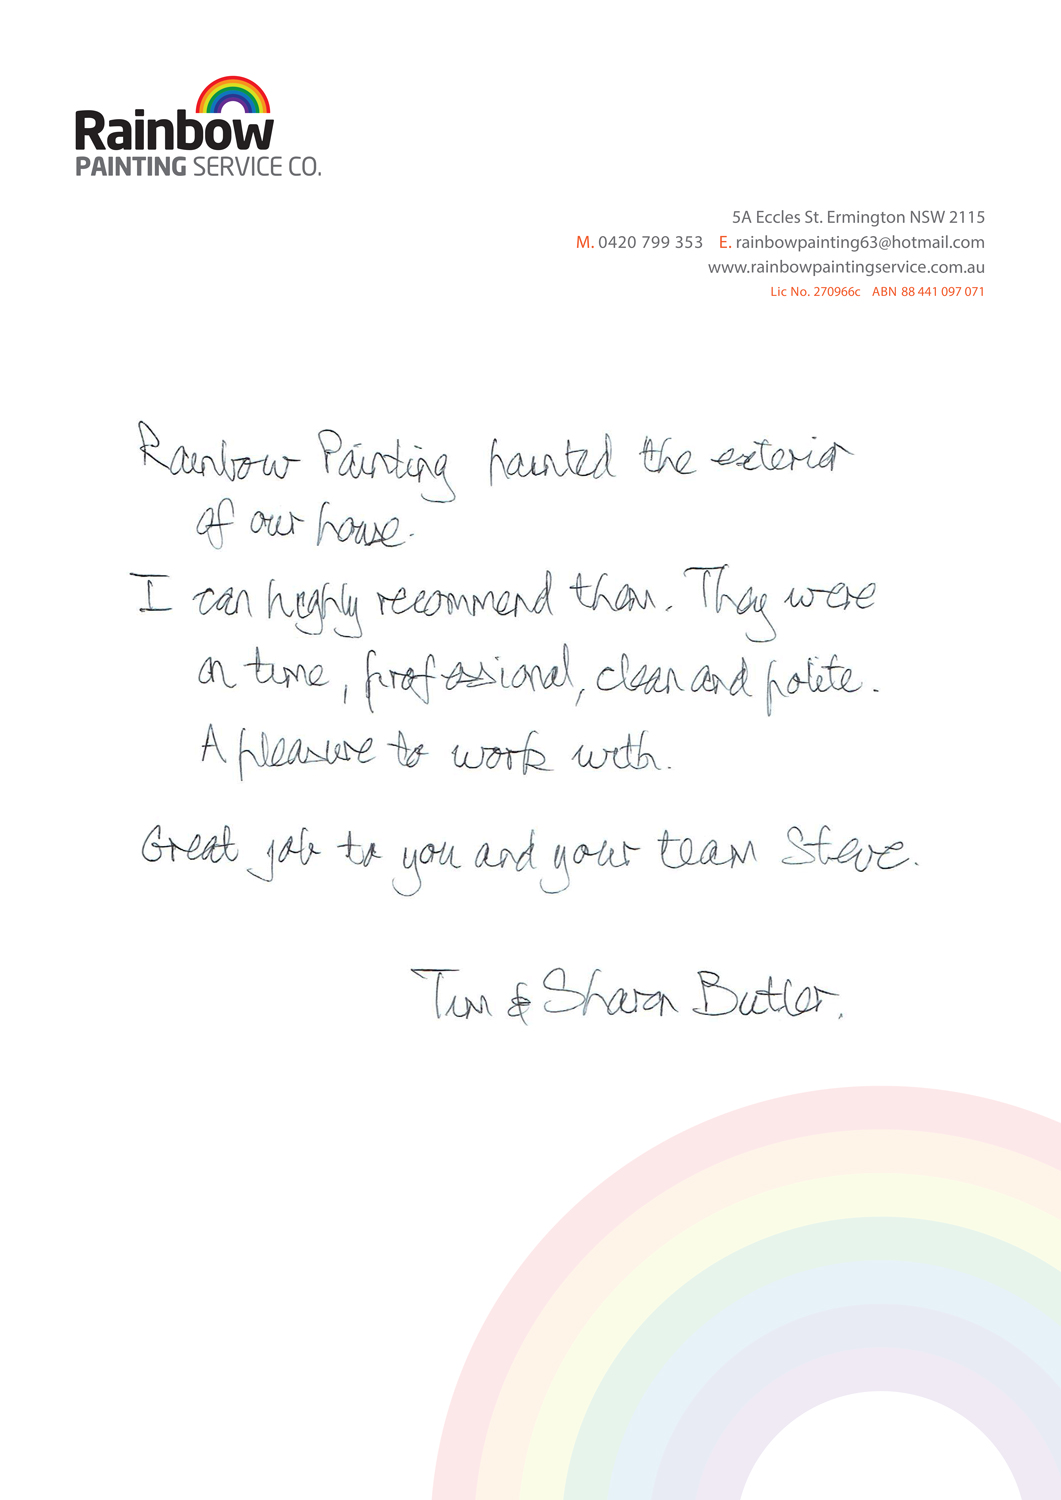 Rainbow
PAINTING SERVICE CO.
5A Eccles St. Ermington NSW 2115
M. 0420 799 353 E. rainbowpainting63@hotmail.com
www.rainbowpaintingservice.com.au
Lic No. 270966c ABN 88 441 097 071
Rainbow Painting painted the exterior
of our house.
I can highly recommend them. They were
on time, professional, clean and polite.
A pleasure to work with.
Great job to you and your team Steve.
Tim & Sharon Butler.